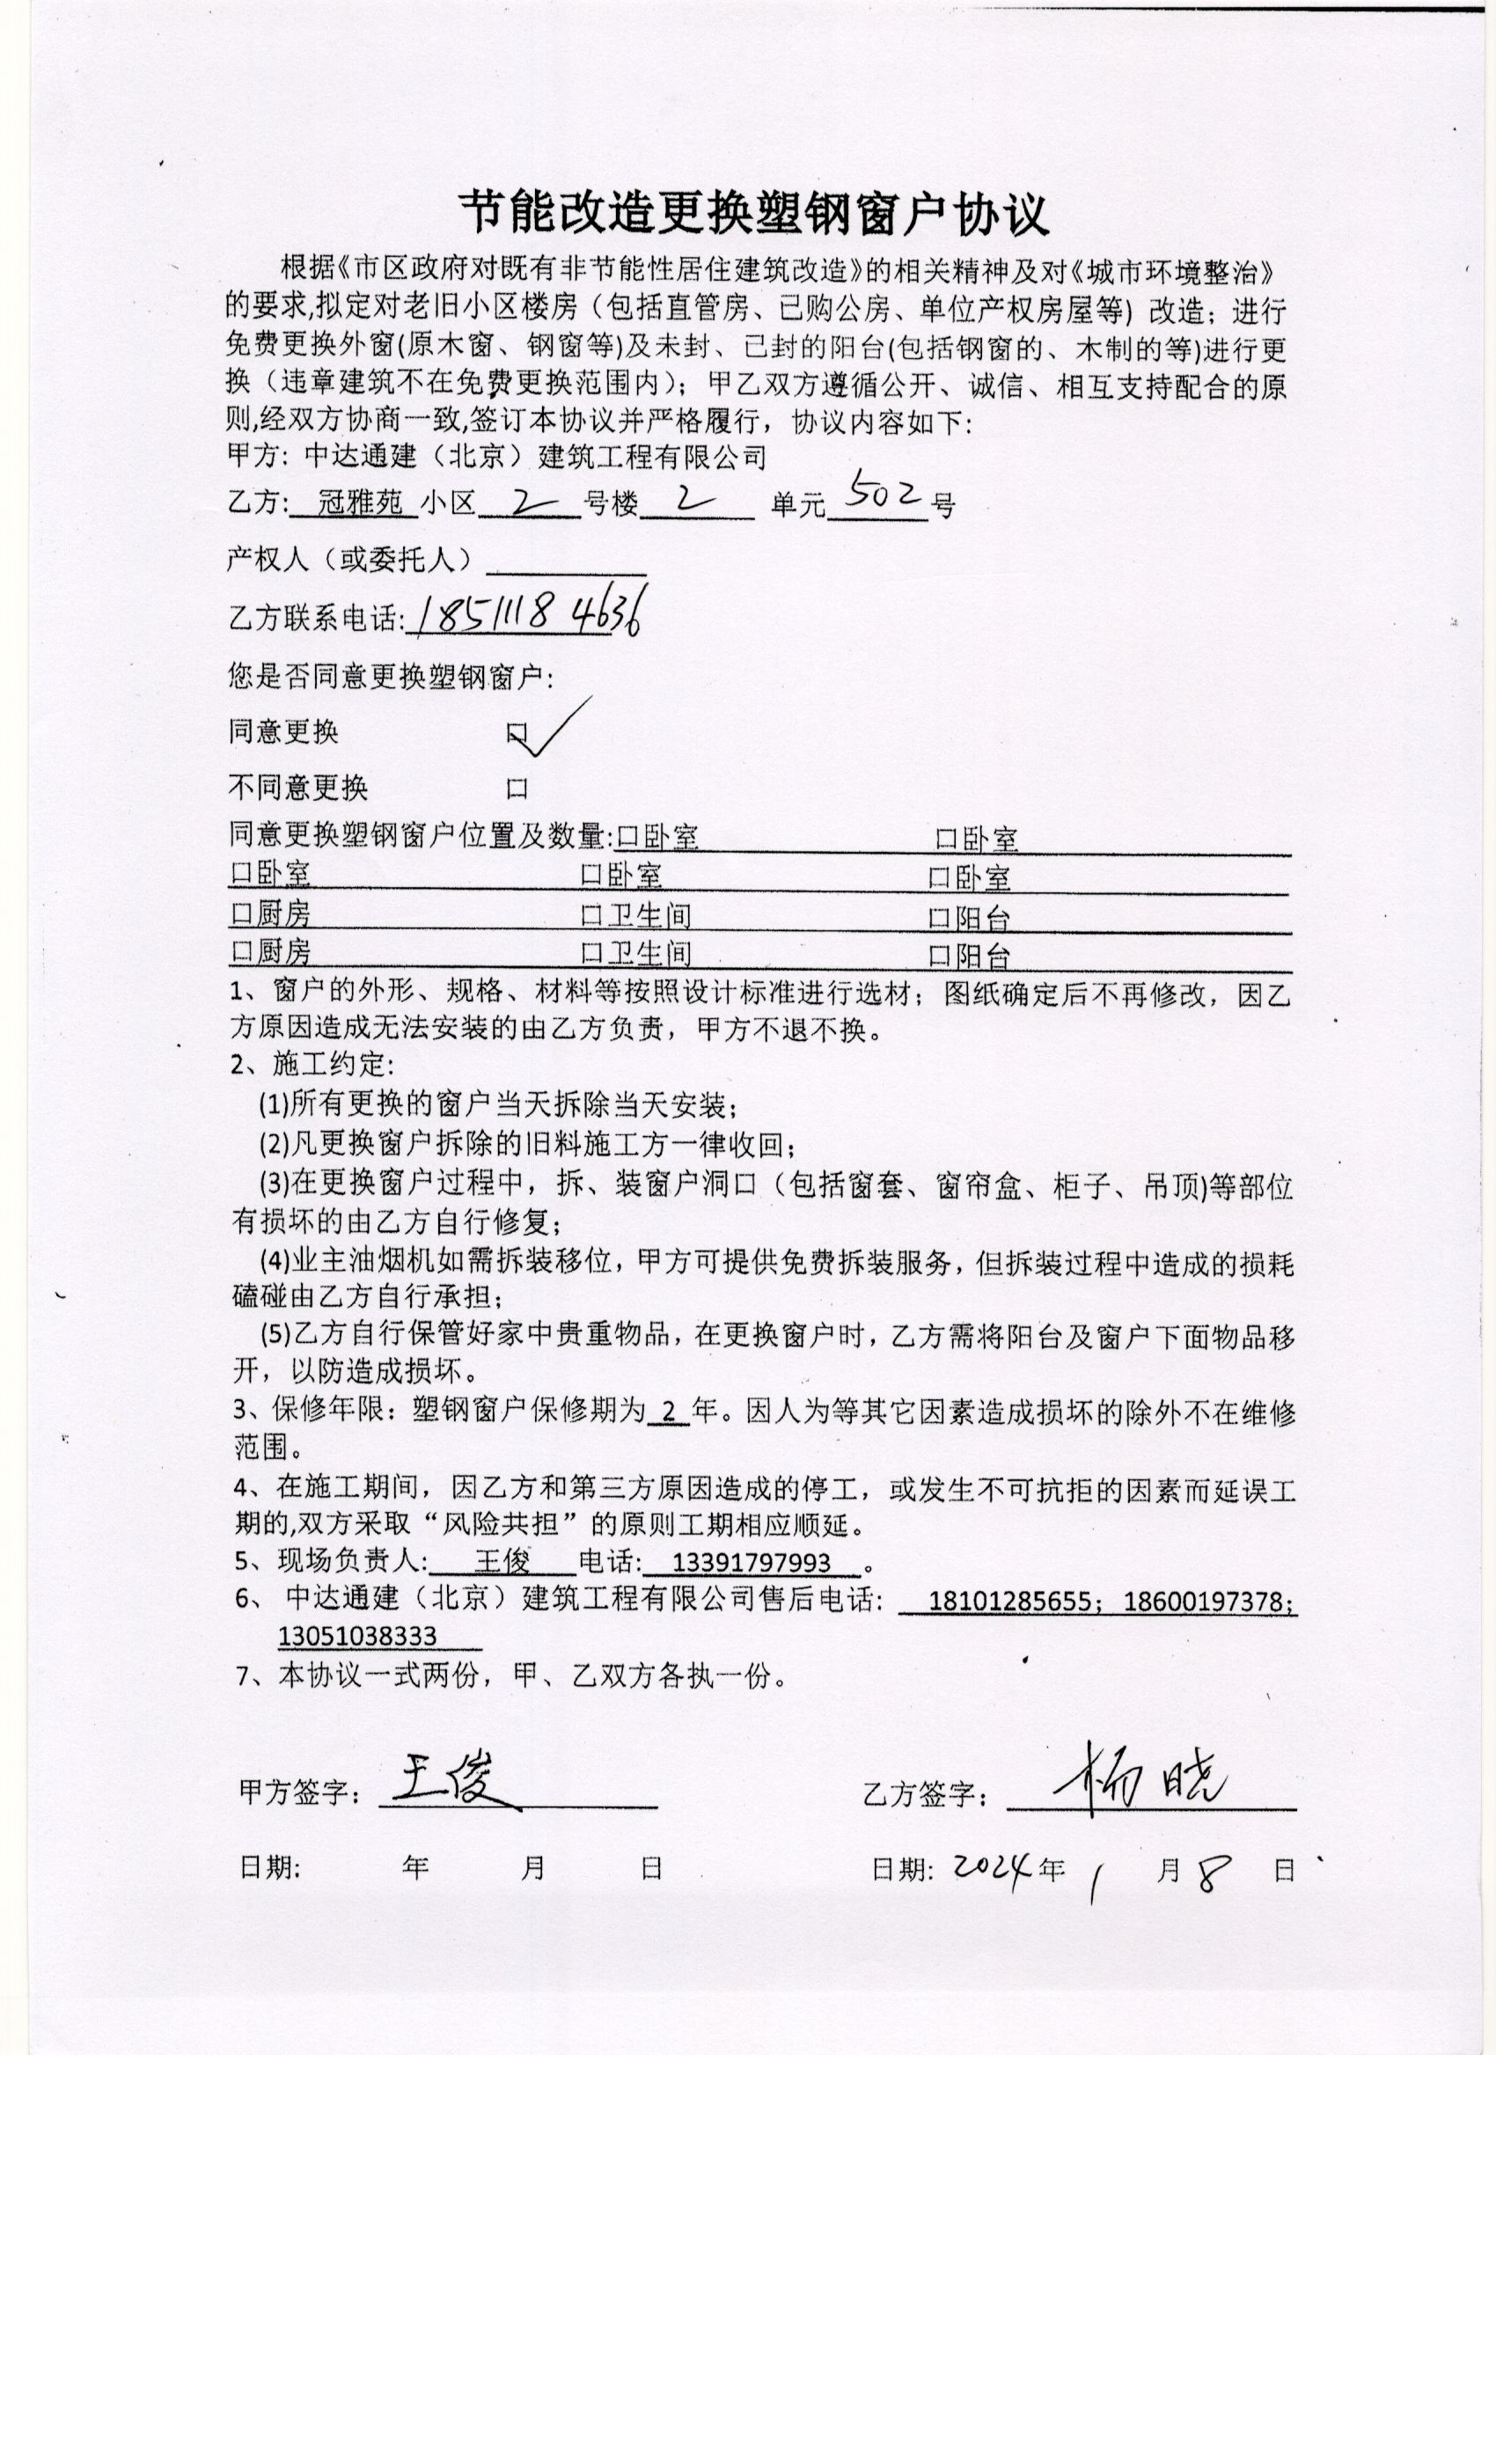 节能改造更换塑钢窗户协议
根据《市区政府对既有非节能性居住建筑改造》的相关精神及对《城市环境整治》
的要求,拟定对老旧小区楼房（包括直管房、已购公房、单位产权房屋等) 改造；进行
免费更换外窗(原木窗、钢窗等)及未封、已封的阳台(包括钢窗的、木制的等)进行更
换（违章建筑不在免费更换范围内)；甲乙双方遵循公开、诚信、相互支持配合的原
则,经双方协商一致,签订本协议并严格履行，协议内容如下:
甲方: 中达通建（北京）建筑工程有限公司
乙方: 冠雅苑 小区 2 号楼 2 单元 502 号
产权人（或委托人）
乙方联系电话: 18511184636
您是否同意更换塑钢窗户:
同意更换 口✓
不同意更换 口
同意更换塑钢窗户位置及数量:口卧室 口卧室
口卧室 口卧室 口卧室
口厨房 口卫生间 口阳台
口厨房 口卫生间 口阳台
1、窗户的外形、规格、材料等按照设计标准进行选材；图纸确定后不再修改，因乙
方原因造成无法安装的由乙方负责，甲方不退不换。
2、施工约定:
(1)所有更换的窗户当天拆除当天安装；
(2)凡更换窗户拆除的旧料施工方一律收回；
(3)在更换窗户过程中，拆、装窗户洞口（包括窗套、窗帘盒、柜子、吊顶)等部位
有损坏的由乙方自行修复；
(4)业主油烟机如需拆装移位，甲方可提供免费拆装服务，但拆装过程中造成的损耗
磕碰由乙方自行承担；
(5)乙方自行保管好家中贵重物品，在更换窗户时，乙方需将阳台及窗户下面物品移
开，以防造成损坏。
3、保修年限：塑钢窗户保修期为 2 年。因人为等其它因素造成损坏的除外不在维修
范围。
4、在施工期间，因乙方和第三方原因造成的停工，或发生不可抗拒的因素而延误工
期的,双方采取“风险共担”的原则工期相应顺延。
5、现场负责人: 王俊 电话: 13391797993 。
6、 中达通建（北京）建筑工程有限公司售后电话: 18101285655；18600197378；
13051038333
7、本协议一式两份，甲、乙双方各执一份。
甲方签字： 王俊 乙方签字： 杨晓
日期: 年 月 日 日期: 2024 年 1 月 8 日